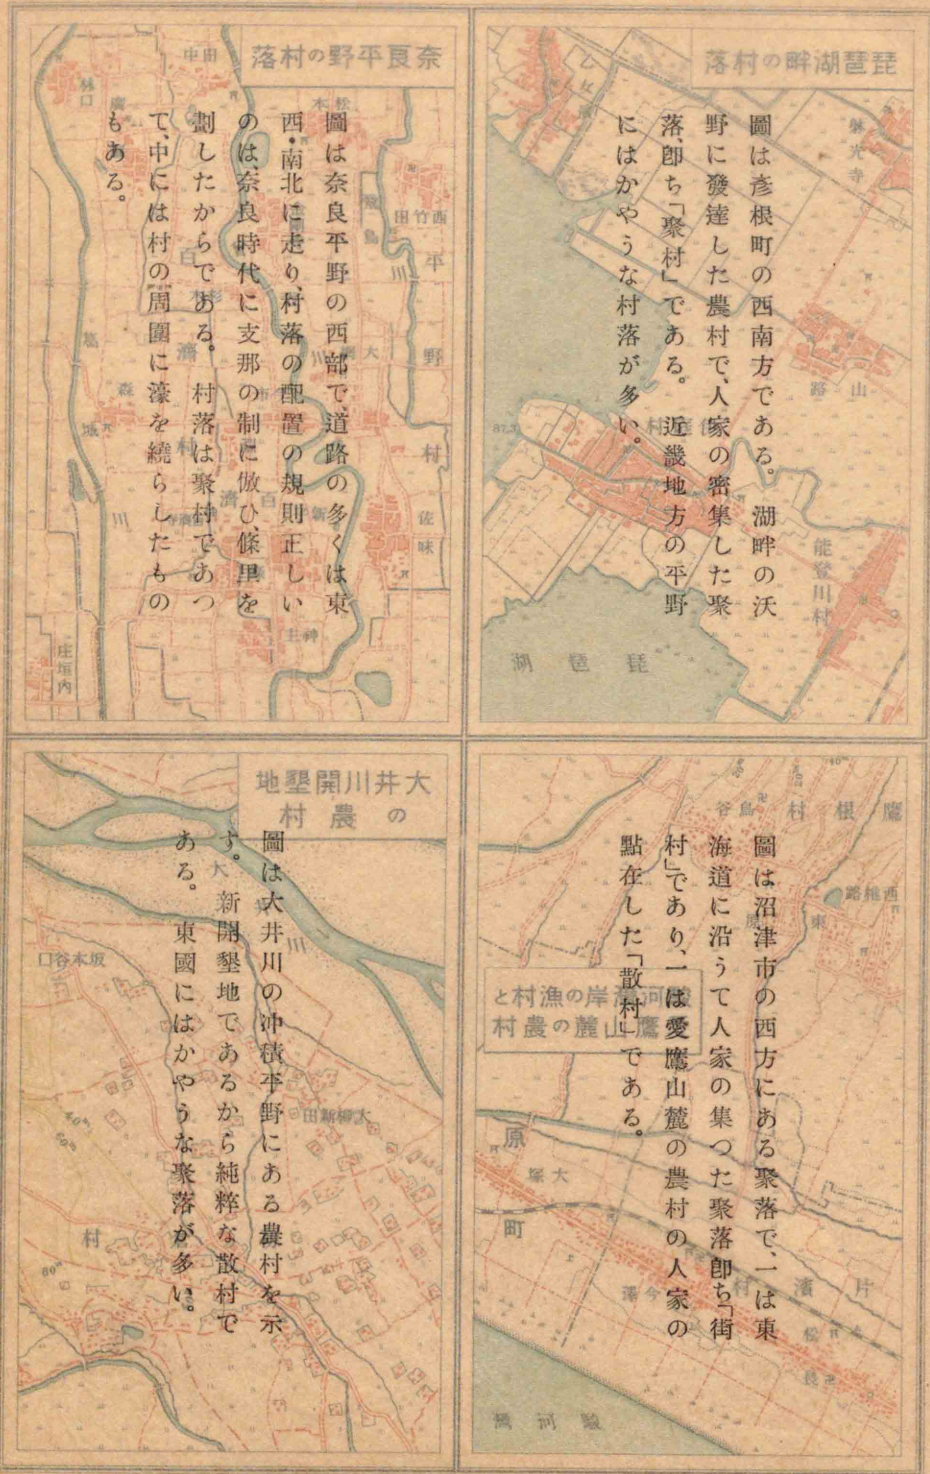 琵琶湖畔の村落
圖は彥根町の西南方である。湖畔の沃
野に發達した農村で、人家の密集した聚
落、卽ち「聚村」である。近畿地方の平野
にはかやうな村落が多い。
山路
能登川村
琵琶湖
奈良平野の村落
圖は奈良平野の西部で、道路の多くは東
西・南北に走り、村落の配置の規則正しい
のは、奈良時代に支那の制に倣ひ、條里を
劃したからである。村落は聚村であつ
て、中には村の周圍に濠を繞らしたもの
もある。
田中
林口
松本
西竹田
平野村
佐味
百濟村
百濟
森
葛城川
神主
庄垣內
駿河灣岸の漁村と
愛鷹山麓の農村
圖は沼津市の西方にある聚落で、一は東
海道に沿うて人家の集つた聚落卽ち「街
村」であり、一は愛鷹山麓の農村の人家の
點在した「散村」である。
鷹根村
鳥谷
西椎路
東原
原町
大塚
今澤
片濱村
駿河灣
大井川開墾地
の農村
圖は大井川の沖積平野にある農村を示
す。新開墾地であるから純粹な散村で
ある。東國にはかやうな聚落が多い。
坂本谷口
大柳新田
村